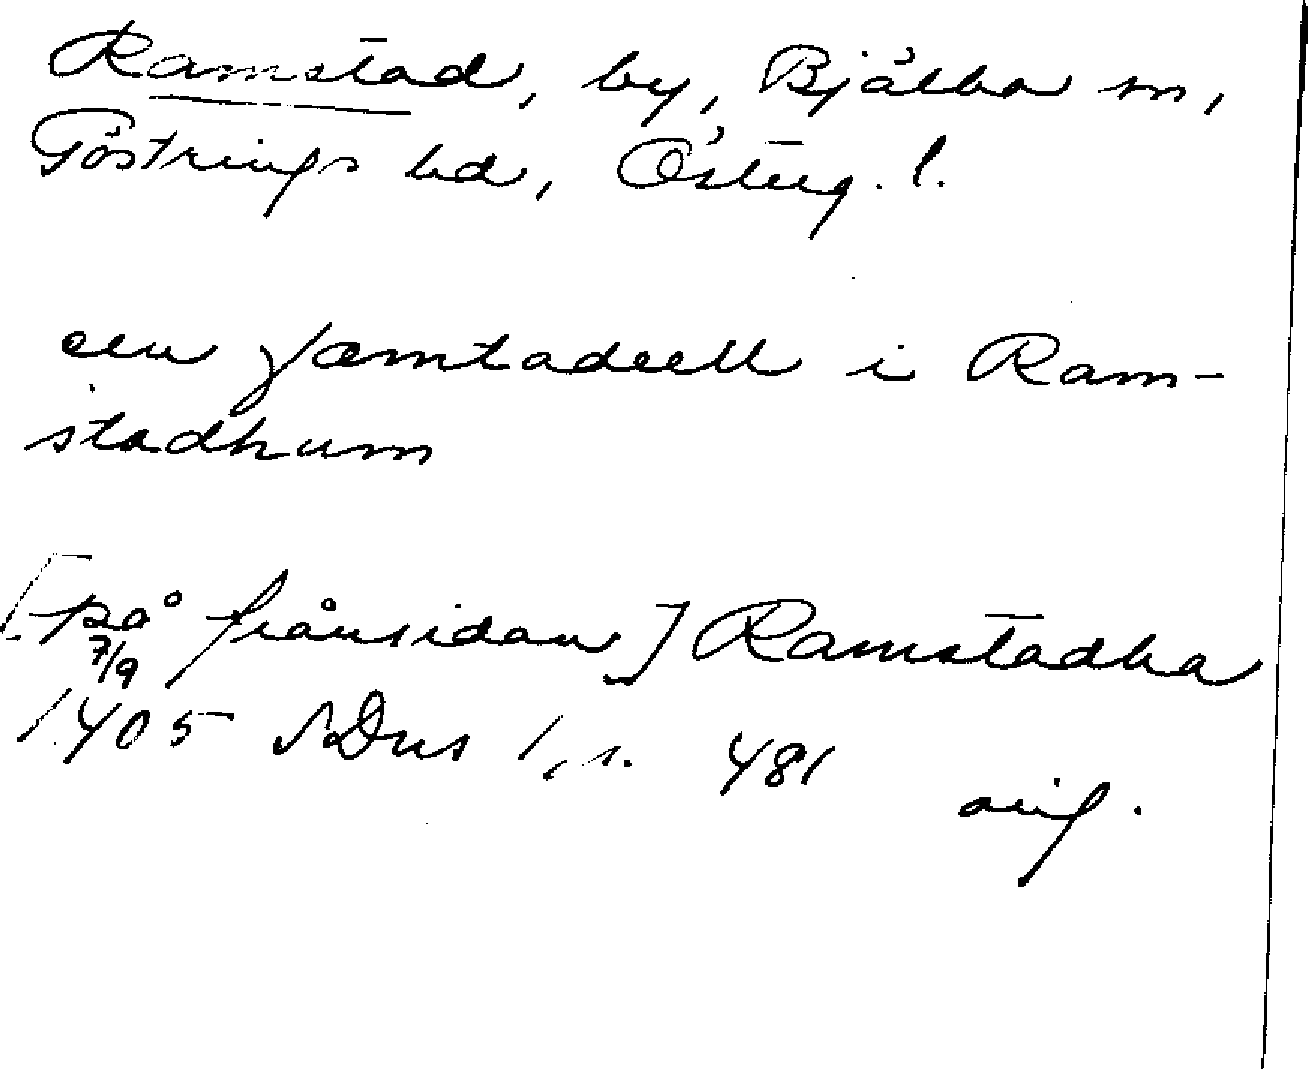 Ramstad, by, Bjälbo sn,
Göstrings hd, Österg. l.
een jæmtadeell i Ram-
stadhum
[på frånsidan] Ramstadha
7/9
1405 SDns 1, s. 481
orig.